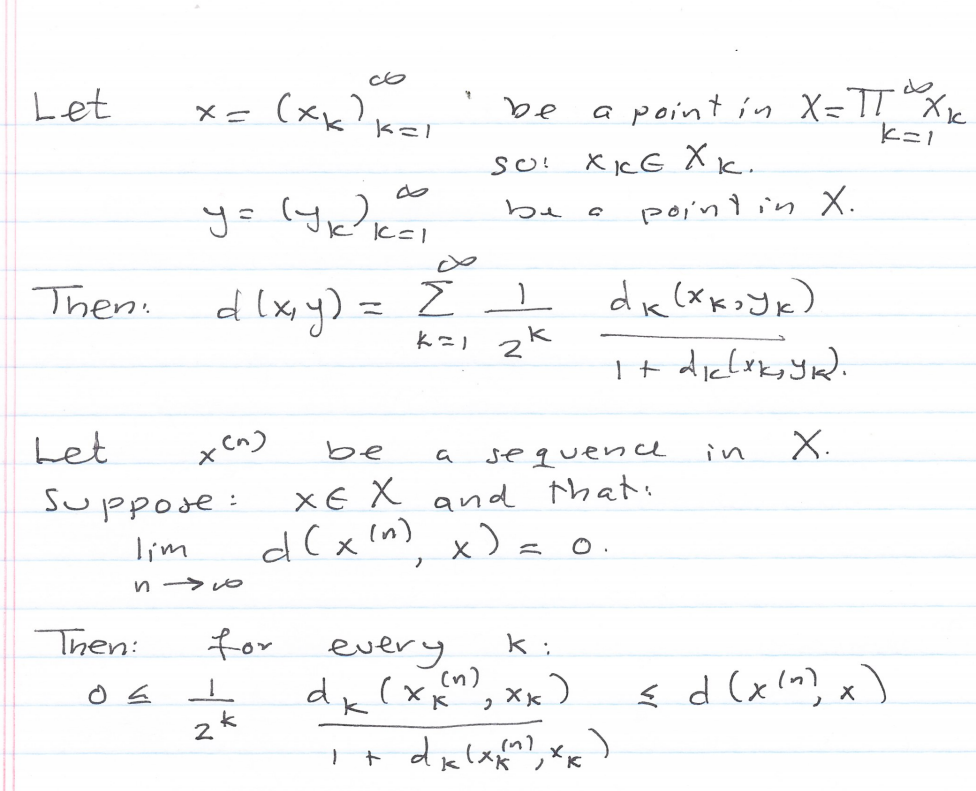 Let x = (x_k)_{k=1}^∞ be a point in X = ∏_{k=1}^∞ X_k
so: x_k ∈ X_k.
y = (y_k)_{k=1}^∞ be a point in X.
Then: d(x,y) = ∑_{k=1}^∞ \frac{1}{2^k} \frac{d_k(x_k, y_k)}{1 + d_k(x_k, y_k)}.
Let x^{(n)} be a sequence in X.
Suppose: x ∈ X and that:
lim_{n→∞} d(x^{(n)}, x) = 0.
Then: for every k:
0 ≤ \frac{1}{2^k} \frac{d_k(x_k^{(n)}, x_k)}{1 + d_k(x_k^{(n)}, x_k)} ≤ d(x^{(n)}, x)